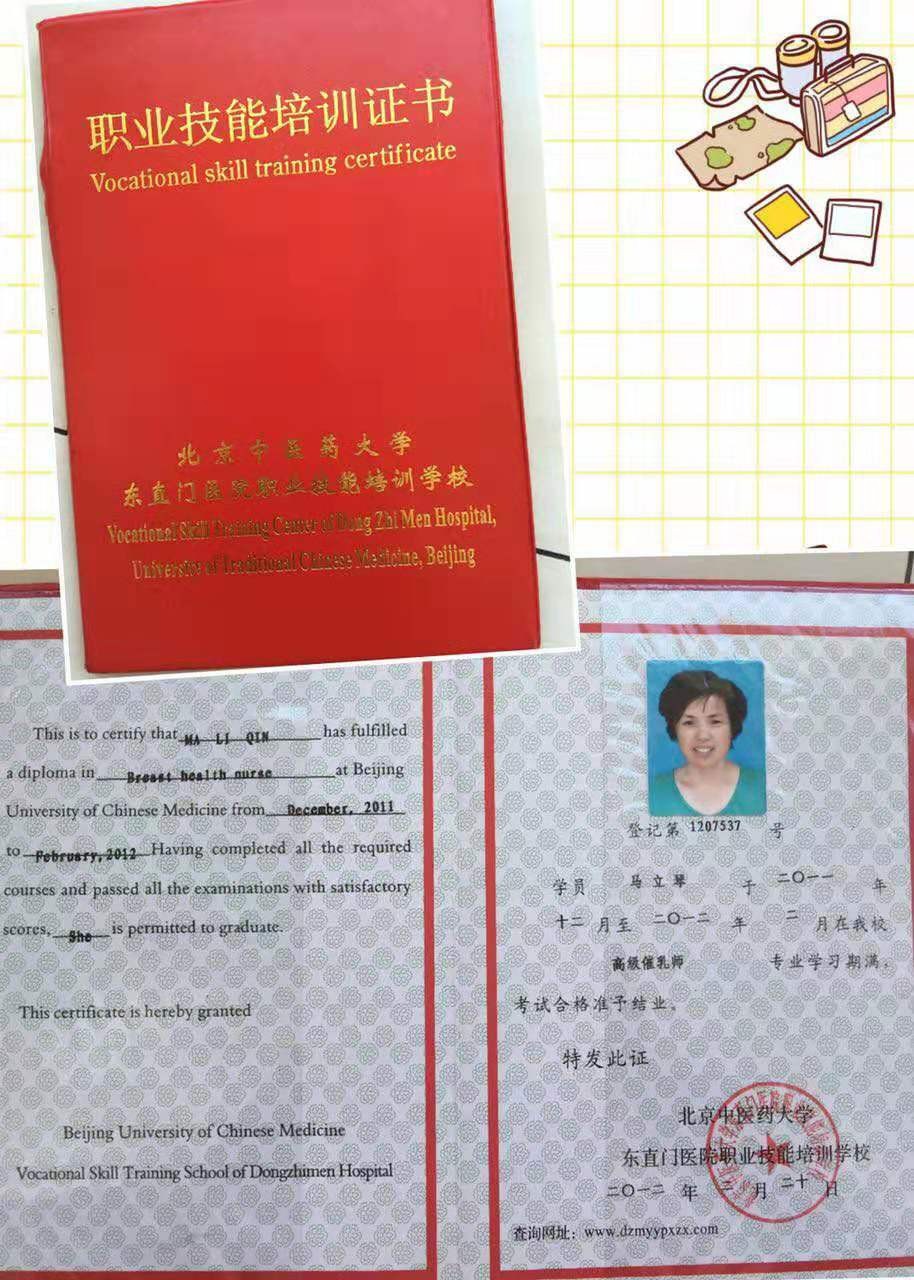 职业技能培训证书
Vocational skill training certificate
北京中医药大学
东直门医院职业技能培训学校
Vocational Skill Training Center of Dong Zhi Men Hospital,
University of Traditional Chinese Medicine, Beijing
This is to certify that MA LI QIN has fulfilled
a diploma in Breast health nurse at Beijing
University of Chinese Medicine from December, 2011
to February, 2012 Having completed all the required
courses and passed all the examinations with satisfactory
scores, She is permitted to graduate.
This certificate is hereby granted
Beijing University of Chinese Medicine
Vocational Skill Training School of Dongzhimen Hospital
登记第 1207537 号
学员 马立琴 于 二〇一一 年
十二 月至 二〇一二 年 二 月在我校
高级催乳师 专业学习期满,
考试合格准予结业。
特发此证
北京中医药大学
东直门医院职业技能培训学校
二〇一二 年 二 月 二十 日
查询网址：www.dzmyypxzx.com